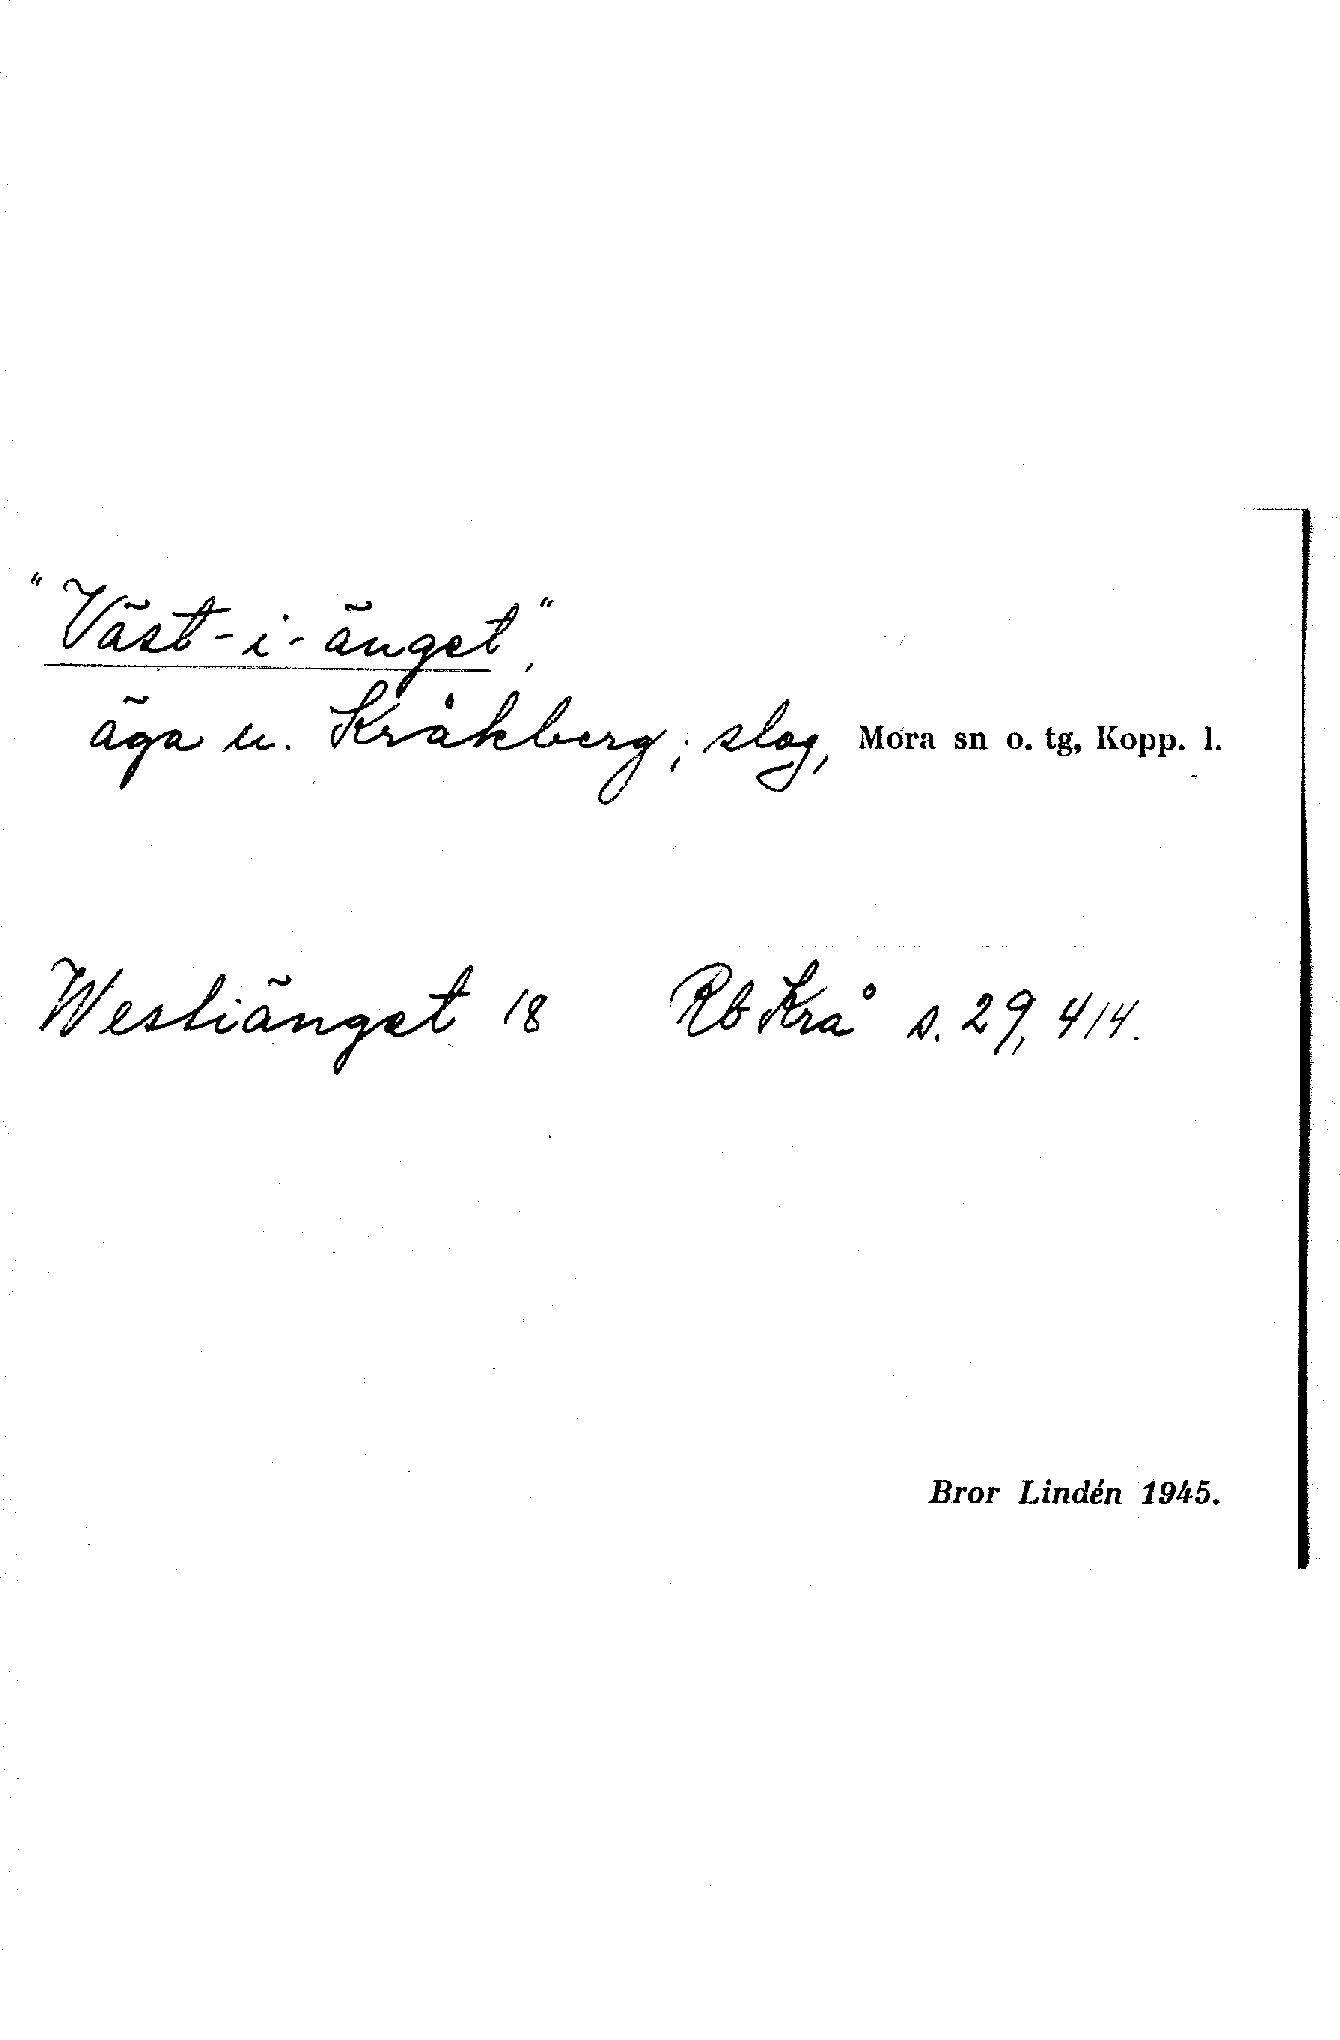 "Väst-i-änget",
äga u. Kråkberg; slog, Mora sn o. tg, Kopp. l.
Westiänget 18 Rb Krå s. 29, 414.
Bror Lindén 1945.